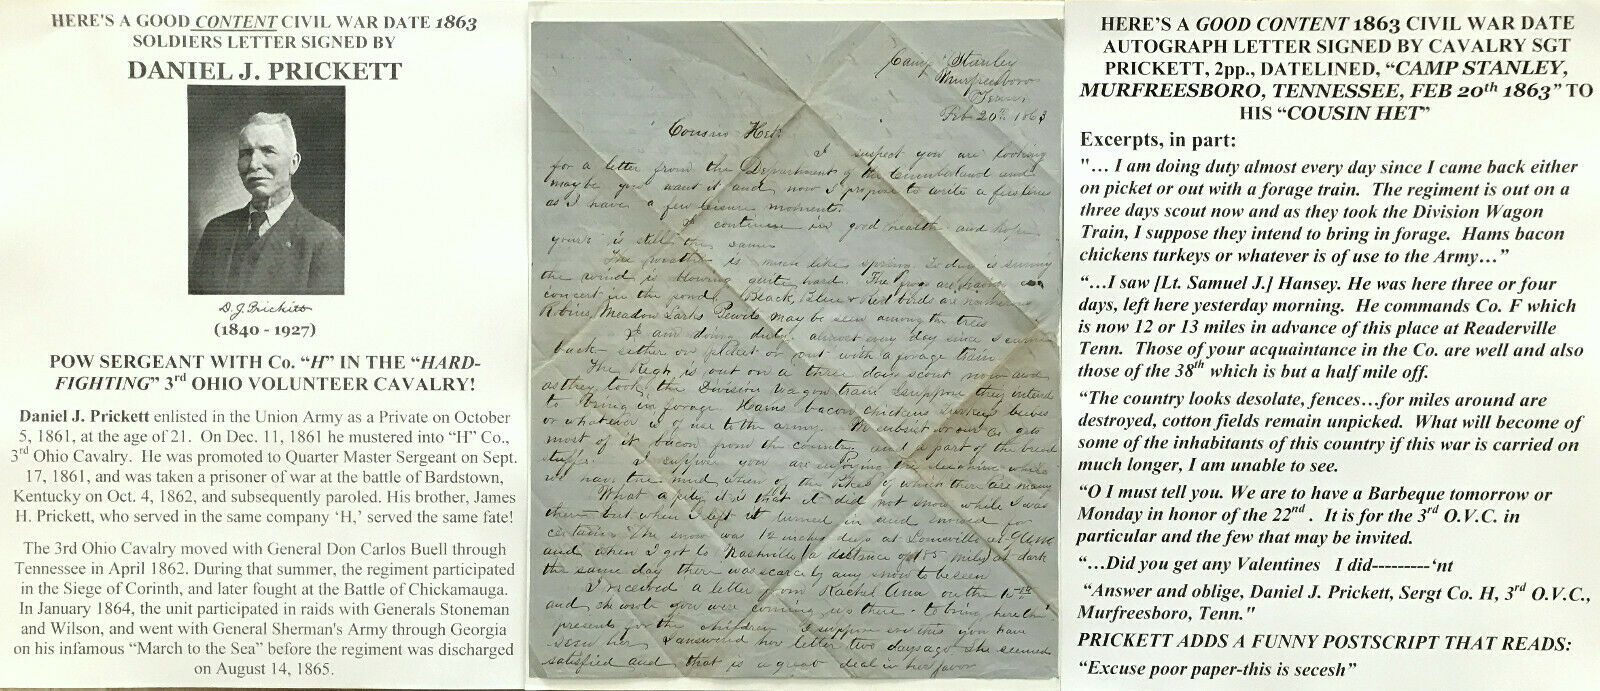 HERE'S A GOOD CONTENT CIVIL WAR DATE 1863
SOLDIERS LETTER SIGNED BY
DANIEL J. PRICKETT
D. J. Prickett
(1840 - 1927)
POW SERGEANT WITH Co. “H” IN THE “HARD-
FIGHTING” 3rd OHIO VOLUNTEER CAVALRY!
Daniel J. Prickett enlisted in the Union Army as a Private on October
5, 1861, at the age of 21. On Dec. 11, 1861 he mustered into “H” Co.,
3rd Ohio Cavalry. He was promoted to Quarter Master Sergeant on Sept.
17, 1861, and was taken a prisoner of war at the battle of Bardstown,
Kentucky on Oct. 4, 1862, and subsequently paroled. His brother, James
H. Prickett, who served in the same company ‘H,’ served the same fate!
The 3rd Ohio Cavalry moved with General Don Carlos Buell through
Tennessee in April 1862. During that summer, the regiment participated
in the Siege of Corinth, and later fought at the Battle of Chickamauga.
In January 1864, the unit participated in raids with Generals Stoneman
and Wilson, and went with General Sherman's Army through Georgia
on his infamous “March to the Sea” before the regiment was discharged
on August 14, 1865.
Camp Stanley
Murfreesboro
Tenn
Feb 20th 1863
Cousin Het
I suspect you are looking
for a letter from the Department of the Cumberland and
may be you want it and now I propose to write a few lines
as I have a few leisure moments.
I continue in good health and hope
yours is still the same
The weather is much like spring. To day is sunny
the wind is blowing quite hard. The frogs are having a
concert in the pond. Black, Blue & Red birds are
Robins, Meadow Larks Pewits may be seen among the trees
I am doing duty almost every day since I came
back either on picket or out with a forage train.
The Regt is out on a three days scout now and
as they took the Division wagon train I suppose they intend
to bring in forage Hams bacon chickens turkeys
or whatever is of use to the army. We our as gets
most of it bacon from the country and a part of the bread
stuffs. I suppose you are enjoying the while
we have the mud when of the Pikes of which there are many
What a pity it is that it did not snow while I was
there but when I left it turned in and snowed for
certain. The snow was 12 inches deep at Louisville
and when I got to Nashville (a distance of 185 miles) at dark
the same day there was scarcely any snow to be seen
I received a letter from Rachel Ann on the
and she wrote you were coming up there to bring her the
presents for the children I suppose ere this you have
seen her. I answered her letter two days ago She seemed
satisfied and that is a great deal in her favor
HERE'S A GOOD CONTENT 1863 CIVIL WAR DATE
AUTOGRAPH LETTER SIGNED BY CAVALRY SGT
PRICKETT, 2pp., DATELINED, “CAMP STANLEY,
MURFREESBORO, TENNESSEE, FEB 20th 1863” TO
HIS “COUSIN HET”
Excerpts, in part:
"… I am doing duty almost every day since I came back either
on picket or out with a forage train. The regiment is out on a
three days scout now and as they took the Division Wagon
Train, I suppose they intend to bring in forage. Hams bacon
chickens turkeys or whatever is of use to the Army…”
“…I saw [Lt. Samuel J.] Hansey. He was here three or four
days, left here yesterday morning. He commands Co. F which
is now 12 or 13 miles in advance of this place at Readerville
Tenn. Those of your acquaintance in the Co. are well and also
those of the 38th which is but a half mile off.
“The country looks desolate, fences…for miles around are
destroyed, cotton fields remain unpicked. What will become of
some of the inhabitants of this country if this war is carried on
much longer, I am unable to see.
“O I must tell you. We are to have a Barbeque tomorrow or
Monday in honor of the 22nd . It is for the 3rd O.V.C. in
particular and the few that may be invited.
“…Did you get any Valentines I did---------‘nt
“Answer and oblige, Daniel J. Prickett, Sergt Co. H, 3rd O.V.C.,
Murfreesboro, Tenn."
PRICKETT ADDS A FUNNY POSTSCRIPT THAT READS:
“Excuse poor paper-this is secesh”